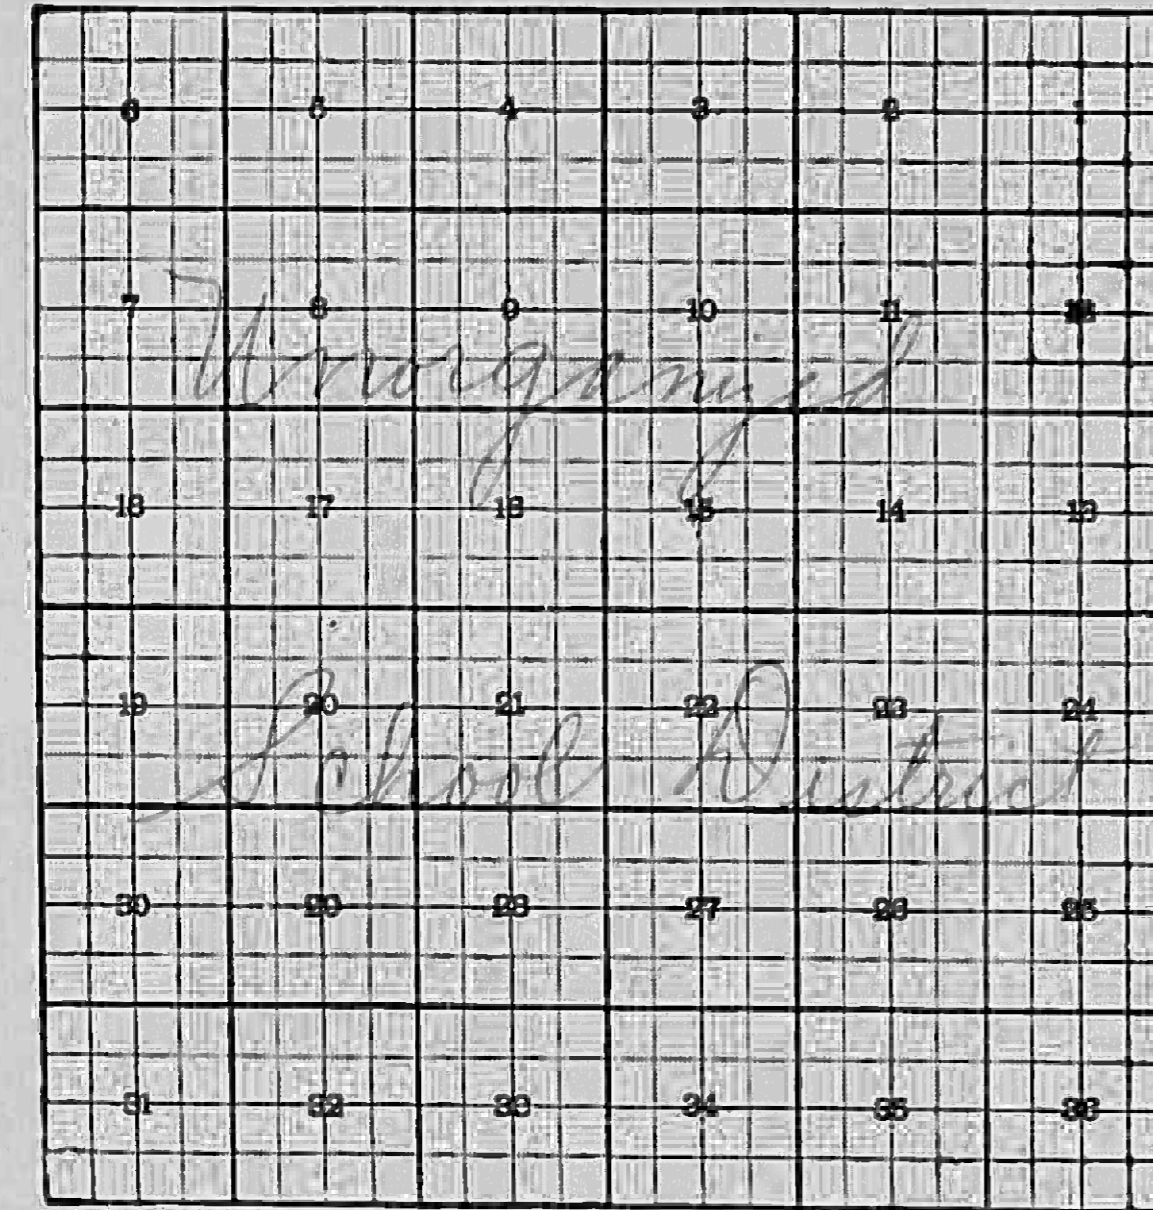 6 5 4 3 2
7 8 9 10 11
Unorganized
18 17 16 15 14 13
19 20 21 22 23 24
School District
30 29 28 27 26 25
31 32 33 34 35 36